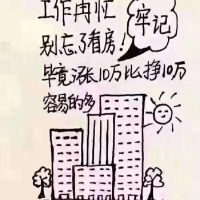 工作再忙
别忘了看房！
牢记
毕竟涨10万比挣10万
容易的多